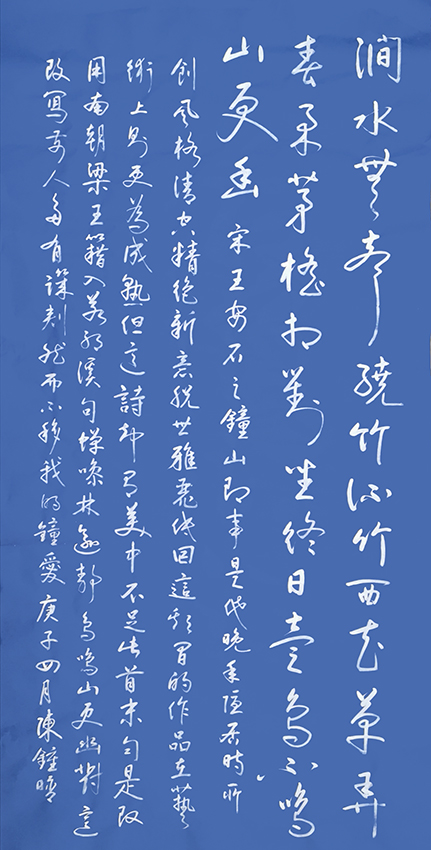 澗水無聲繞竹流竹西花草弄
春柔茅檐相對坐終日壹鳥不鳴
山更幽 宋王安石之鐘山即事是他晚年隱居時所
創風格清空精絕新意脫世雅麗低回這期間的作品在藝
術上則更為成熟但這詩卻有美中不足此首末句是改
用南朝梁王籍入若耶溪句蟬噪林逾靜鳥鳴山更幽對這
改寫前人多有譏刺然而不移我的鐘愛庚子四月陳鐘